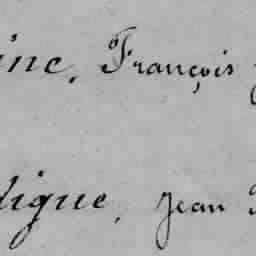 ine, François
digue, Jean